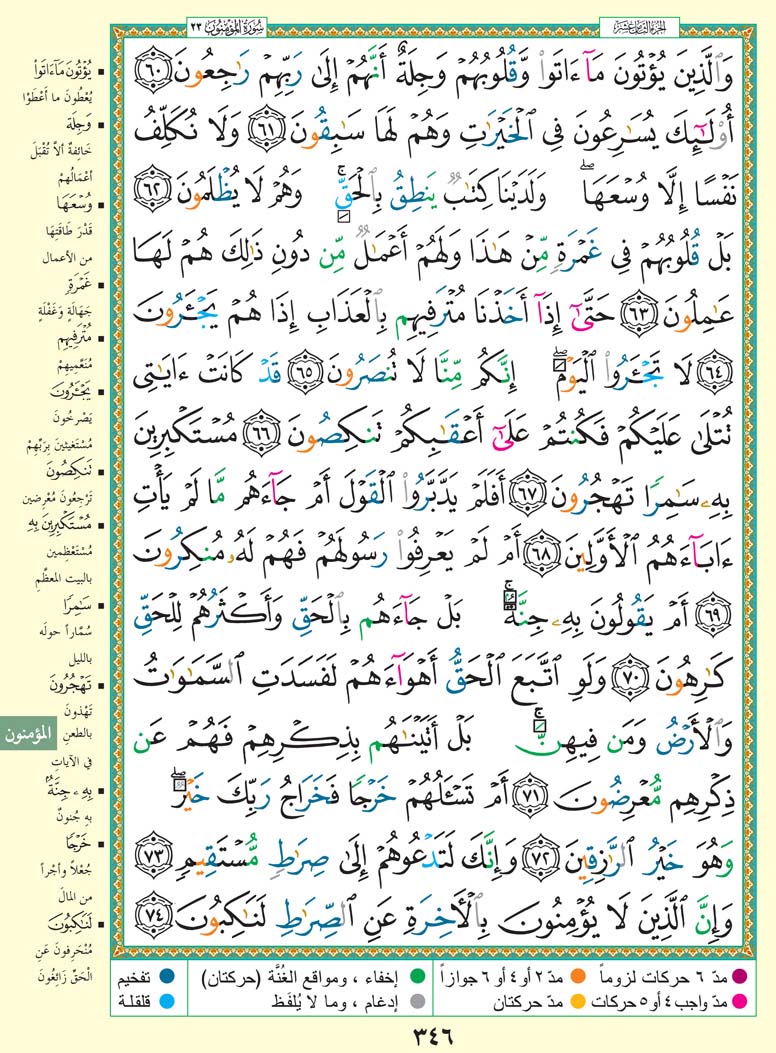 الجزء الثامن عشر
سورة المؤمنون ٢٣
وَالَّذِينَ يُؤْتُونَ مَآ ءَاتَوا۟ وَّقُلُوبُهُمْ وَجِلَةٌ أَنَّهُمْ إِلَىٰ رَبِّهِمْ رَٰجِعُونَ ٦٠
أُو۟لَـٰٓئِكَ يُسَـٰرِعُونَ فِى الْخَيْرَٰتِ وَهُمْ لَهَا سَـٰبِقُونَ ٦١ وَلَا نُكَلِّفُ
نَفْسًا إِلَّا وُسْعَهَا ۖ وَلَدَيْنَا كِتَـٰبٌ يَنطِقُ بِالْحَقِّ ۚ وَهُمْ لَا يُظْلَمُونَ ٦٢
بَلْ قُلُوبُهُمْ فِى غَمْرَةٍ مِّنْ هَـٰذَا وَلَهُمْ أَعْمَـٰلٌ مِّن دُونِ ذَٰلِكَ هُمْ لَهَا
عَـٰمِلُونَ ٦٣ حَتَّىٰٓ إِذَآ أَخَذْنَا مُتْرَفِيهِم بِالْعَذَابِ إِذَا هُمْ يَجْـَٔرُونَ
٦٤ لَا تَجْـَٔرُوا۟ الْيَوْمَ ۖ إِنَّكُم مِّنَّا لَا تُنصَرُونَ ٦٥ قَدْ كَانَتْ ءَايَـٰتِى
تُتْلَىٰ عَلَيْكُمْ فَكُنتُمْ عَلَىٰٓ أَعْقَـٰبِكُمْ تَنكِصُونَ ٦٦ مُسْتَكْبِرِينَ
بِهِۦ سَـٰمِرًا تَهْجُرُونَ ٦٧ أَفَلَمْ يَدَّبَّرُوا۟ الْقَوْلَ أَمْ جَآءَهُم مَّا لَمْ يَأْتِ
ءَابَآءَهُمُ الْأَوَّلِينَ ٦٨ أَمْ لَمْ يَعْرِفُوا۟ رَسُولَهُمْ فَهُمْ لَهُۥ مُنكِرُونَ
٦٩ أَمْ يَقُولُونَ بِهِۦ جِنَّةٌۢ ۚ بَلْ جَآءَهُم بِالْحَقِّ وَأَكْثَرُهُمْ لِلْحَقِّ
كَـٰرِهُونَ ٧٠ وَلَوِ اتَّبَعَ الْحَقُّ أَهْوَآءَهُمْ لَفَسَدَتِ السَّمَـٰوَٰتُ
وَالْأَرْضُ وَمَن فِيهِنَّ ۚ بَلْ أَتَيْنَـٰهُم بِذِكْرِهِمْ فَهُمْ عَن
ذِكْرِهِم مُّعْرِضُونَ ٧١ أَمْ تَسْـَٔلُهُمْ خَرْجًا فَخَرَاجُ رَبِّكَ خَيْرٌ ۖ
وَهُوَ خَيْرُ الرَّٰزِقِينَ ٧٢ وَإِنَّكَ لَتَدْعُوهُمْ إِلَىٰ صِرَٰطٍ مُّسْتَقِيمٍ ٧٣
وَإِنَّ الَّذِينَ لَا يُؤْمِنُونَ بِالْـَٔاخِرَةِ عَنِ الصِّرَٰطِ لَنَـٰكِبُونَ ٧٤
يُؤْتُونَ مَآ ءَاتَوا۟
يُعْطُونَ ما أَعْطَوْا
وَجِلَة
خائفةٌ ألاّ تُقْبَلَ
أعْمَالُهم
وُسْعَهَا
قَدْرَ طَاقَتِهَا
من الأعمال
غَمْرَةٍ
جَهَالَةٍ وَغَفْلَةٍ
مُتْرَفِيهِم
مُنَعَّمِيهِمْ
يَجْـَٔرُونَ
يَصْرخُونَ
مُسْتَغيثينَ بِرَبِّهِمْ
تَنكِصُونَ
تَرْجِعُونَ مُعْرِضين
مُسْتَكْبِرِينَ بِهِۦ
مُسْتَعْظِمين
بالبيت المعظَّم
سَـٰمِرًا
سُمَّاراً حولَه
بالليل
تَهْجُرُونَ
تَهْذونَ
بالطعنِ
في الآياتِ
بِهِۦ جِنَّةٌۢ
به جُنونٌ
خَرْجًا
جُعْلاً وأجْراً
من المالِ
لَنَـٰكِبُونَ
مُنْحَرِفونَ عَنِ
الْحَقِّ زَائِغُونَ
المؤمنون
مدّ ٦ حركات لزوماً
مدّ ٢ أو ٤ أو ٦ جوازاً
إخفاء ، ومواقع الغُنَّة (حركتان)
تفخيم
مدّ واجب ٤ أو ٥ حركات
مدّ حركتان
إدغام ، وما لا يُلفَظ
قلقلة
٣٤٦